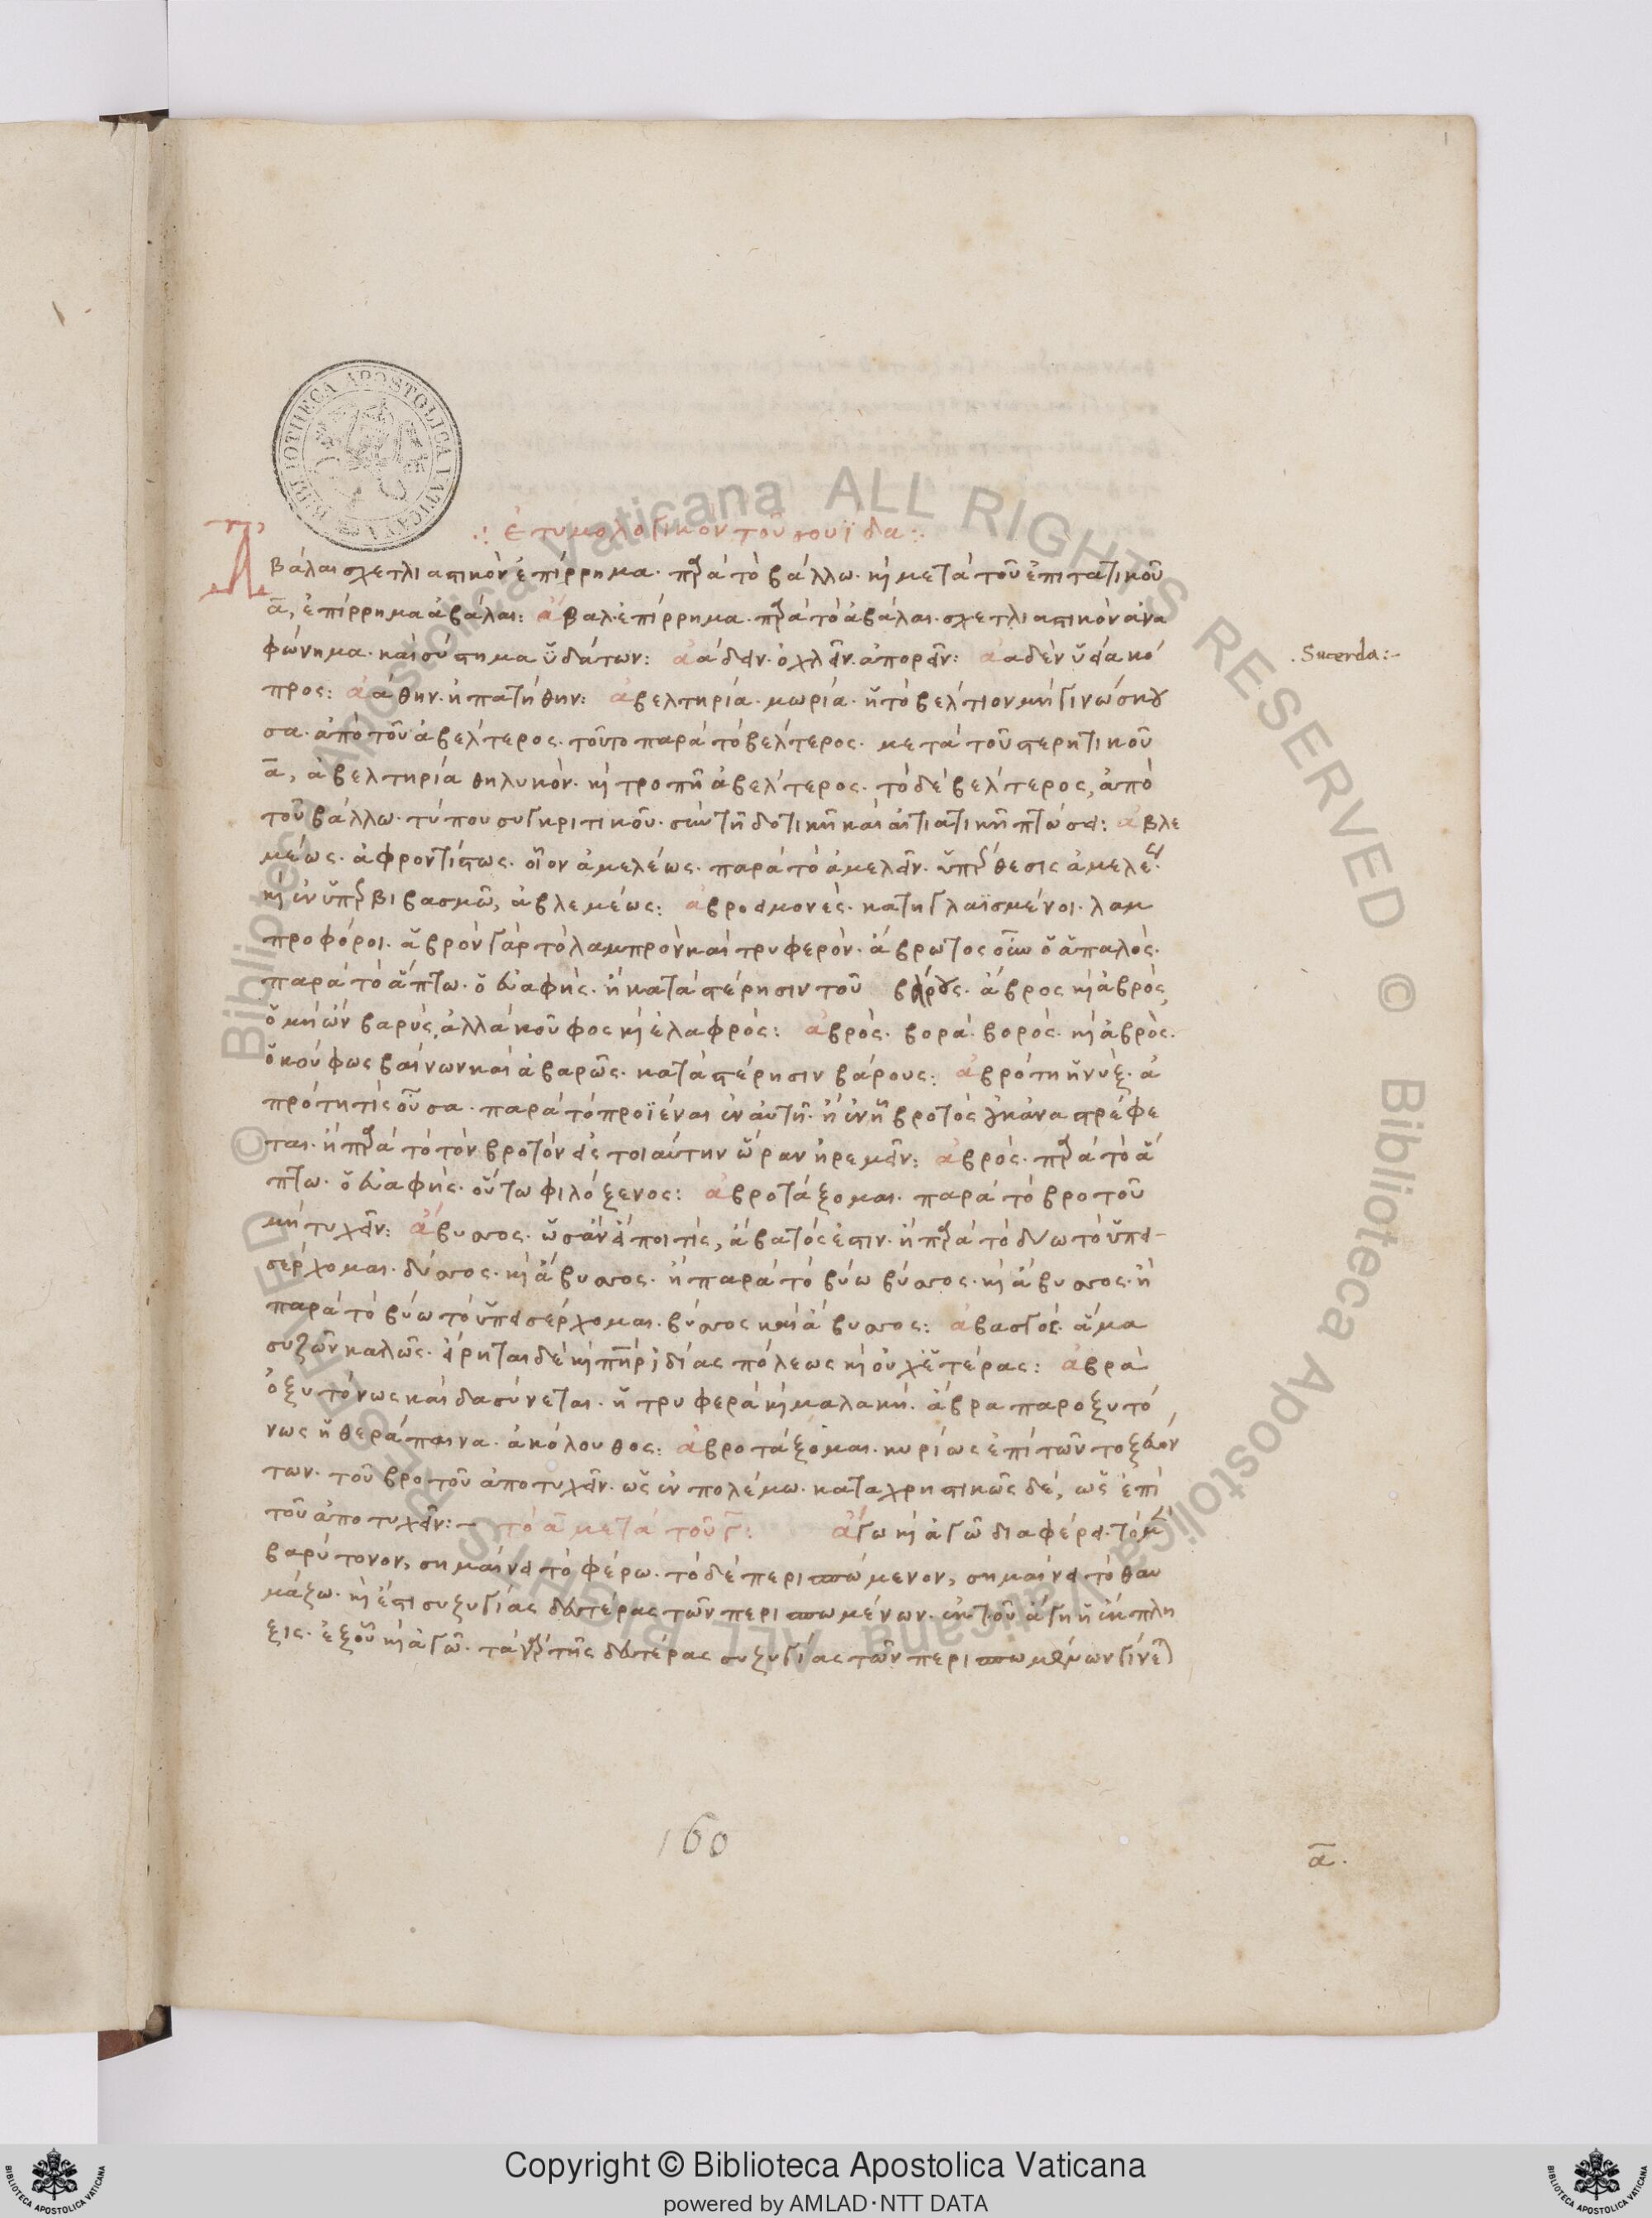 1
BIBLIOTHECA APOSTOLICA VATICANA
.: ἐτυμολογικὸν τοῦ σουΐδα :.
Ἀβάλαι σχετλιαστικὸν ἐπίρρημα· παρὰ τὸ βάλλω· καὶ μετὰ τοῦ ἐπιτατικοῦ
α, ἐπίρρημα ἀβάλαι: ἄβαλ· ἐπίρρημα· παρὰ τὸ ἀβάλαι· σχετλιαστικὸν ἀνα
φώνημα· καὶ σύστημα ὑδάτων: ἀάδειν· ὀχλεῖν· ἀπορεῖν: ἀαδεῖν ὕδα κό
.Sucerda:-
προς: ἀάθην· ἠπατήθην: ἀβελτηρία· μωρία· ἡ τὸ βέλτιον μὴ γινώσκου
σα· ἀπὸ τοῦ ἀβελτερος· τοῦτο παρὰ τὸ βέλτερος· μετὰ τοῦ στερητικοῦ
α, ἀβελτηρία θηλυκόν· καὶ τροπῆ ἀβελτερος· τὸ δὲ βέλτερος, ἀπὸ
τοῦ βάλλω· τύπου συγκριτικοῦ· σὺν τῆ δοτικῆ καὶ αἰτιατικῆ πτώσει: ἀβλε
μέως· ἀφροντίστως· οἷον ἀμελέως· παρὰ τὸ ἀμελεῖν· ὑπέρθεσις ἀμελέως
καὶ ἐν ὑπερβιβασμῶ, ἀβλεμέως: ἀβροείμονες· κατηγλαϊσμένοι· λαμ
προφόροι· ἁβρὸν γὰρ τὸ λαμπρὸν καὶ τρυφερόν· ἄβρωτος οὕτω ὁ ἁπαλός·
παρὰ τὸ ἅπτω· ὁ εὐαφής· ἢ κατὰ στέρησιν τοῦ βάρους· ἄβρος καὶ ἀβρὸς,
ὁ μὴ ὢν βαρὺς, ἀλλὰ κοῦφος καὶ ἐλαφρός: ἀβρός· βορά· βορός· καὶ ἀβρός·
ὁ κούφως βαίνων καὶ ἀβαρῶς· κατὰ στέρησιν βάρους: ἀβρότη ἡ νύξ· ἀ
πρότη τὶς οὖσα· παρὰ τὸ προϊέναι ἐν αὐτῆ· ἢ ἐν ἧ βροτὸς οὐκ ἀναστρέφε
ται· ἢ παρὰ τὸ τὸν βροτὸν εἰς τοιαύτην ὥραν ἠρεμεῖν: ἁβρός· παρὰ τὸ ἅ
πτω· ὁ εὐαφής· οὕτω φιλόξενος: ἀβροτάξομαι· παρὰ τὸ βροτοῦ
μὴ τυχεῖν: ἄβυσσος· ὡσὰν εἴποι τίς, ἄβατός ἐστιν· ἢ παρὰ τὸ δύω τὸ ὑπει-
σέρχομαι· δύσσος· καὶ ἄβυσσος· ἢ παρὰ τὸ βύω βύσσος· καὶ ἄβυσσος· ἢ
παρὰ τὸ βύω τὸ ὑπεισέρχομαι· βύσσος καὶ ἄβυσσος: ἀβαστός· ἅμα
συζῶν καλῶς· εἴρηται δὲ καὶ περὶ ἰδίας πόλεως καὶ οὐχ ἑτέρας: ἁβρὰ
ὀξυτόνως καὶ δασύνεται· ἡ τρυφερὰ καὶ μαλακή· ἄβρα παροξυτό
νως ἡ θεράπαινα· ἀκόλουθος: ἀβροτάξομαι· κυρίως ἐπὶ τῶν τοξευόν
των· τοῦ βροτοῦ ἀποτυχεῖν· ὡς ἐν πολέμω· καταχρηστικῶς δέ, ὡς ἐπὶ
τοῦ ἀποτυχεῖν:- τὸ α μετὰ τοῦ γ: ἄγω καὶ ἀγῶ διαφέρει· τὸ μὲν
βαρύτονον, σημαίνει τὸ φέρω· τὸ δὲ περισπώμενον, σημαίνει τὸ θαυ
μάζω· καὶ ἔστι συζυγίας δευτέρας τῶν περισπωμένων· ἐκ τοῦ ἄγη ἡ ἔκπλη
ξις· ἐξ οὗ καὶ ἀγῶ· τὰ γὰρ τῆς δευτέρας συζυγίας τῶν περισπωμένων γίνεται
160
α.
© Biblioteca Apostolica Vaticana ALL RIGHTS RESERVED
Copyright © Biblioteca Apostolica Vaticana
powered by AMLAD·NTT DATA